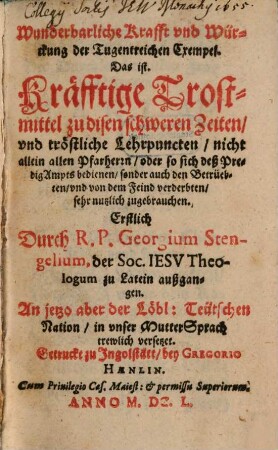 Collegij Soctis JESV Monachij 1655.
Wunderbarliche Krafft vnd Wür-
ckung der Tugentreichen Exempel.
Das ist.
Kräfftige Trost-
mittel zu disen schweren Zeiten/
vnd tröstliche Lehrpuncten / nicht
allein allen Pfarherrn / oder so sich deß Pre-
digAmpts bedienen / sonder auch den Betrüeb-
ten / vnd von dem Feind verderbten /
sehr nutzlich zugebrauchen.
Erstlich
Durch R. P. Georgium Sten-
gelium, der Soc. IESV Theo-
logum zu Latein außgan-
gen.
An jetzo aber der Löbl: Teütschen
Nation / in vnser MutterSprach
trewlich versetzet.
Getruckt zu Ingolstätt / bey GREGORIO
HÆNLIN.
Cum Privilegio Cæs. Maiest: & permissu Superiorum.
ANNO M. DC. L.